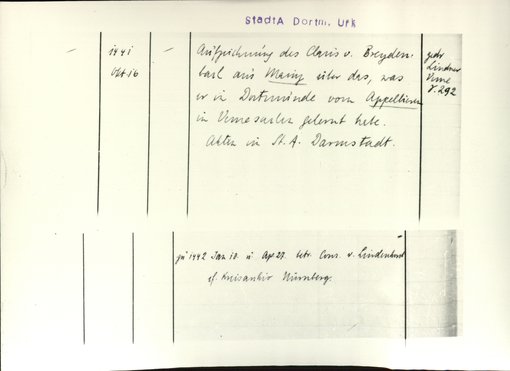 StadtA Dortm. Urk
1441
Okt. 16
Aufzeichnung des Clais v. Breyden-
bach aus Mainz über das, was
er in Dortmunde vom Appellieren
in Vemesachen gelernt habe.
Akten in St. A. Darmstadt.
gedr.
Lindner
Veme
S. 292
zu 1442 Jan 18. u Apr 27. betr. Conr. v. Lindenhorst
cf. Kreisarchiv Nürnberg.